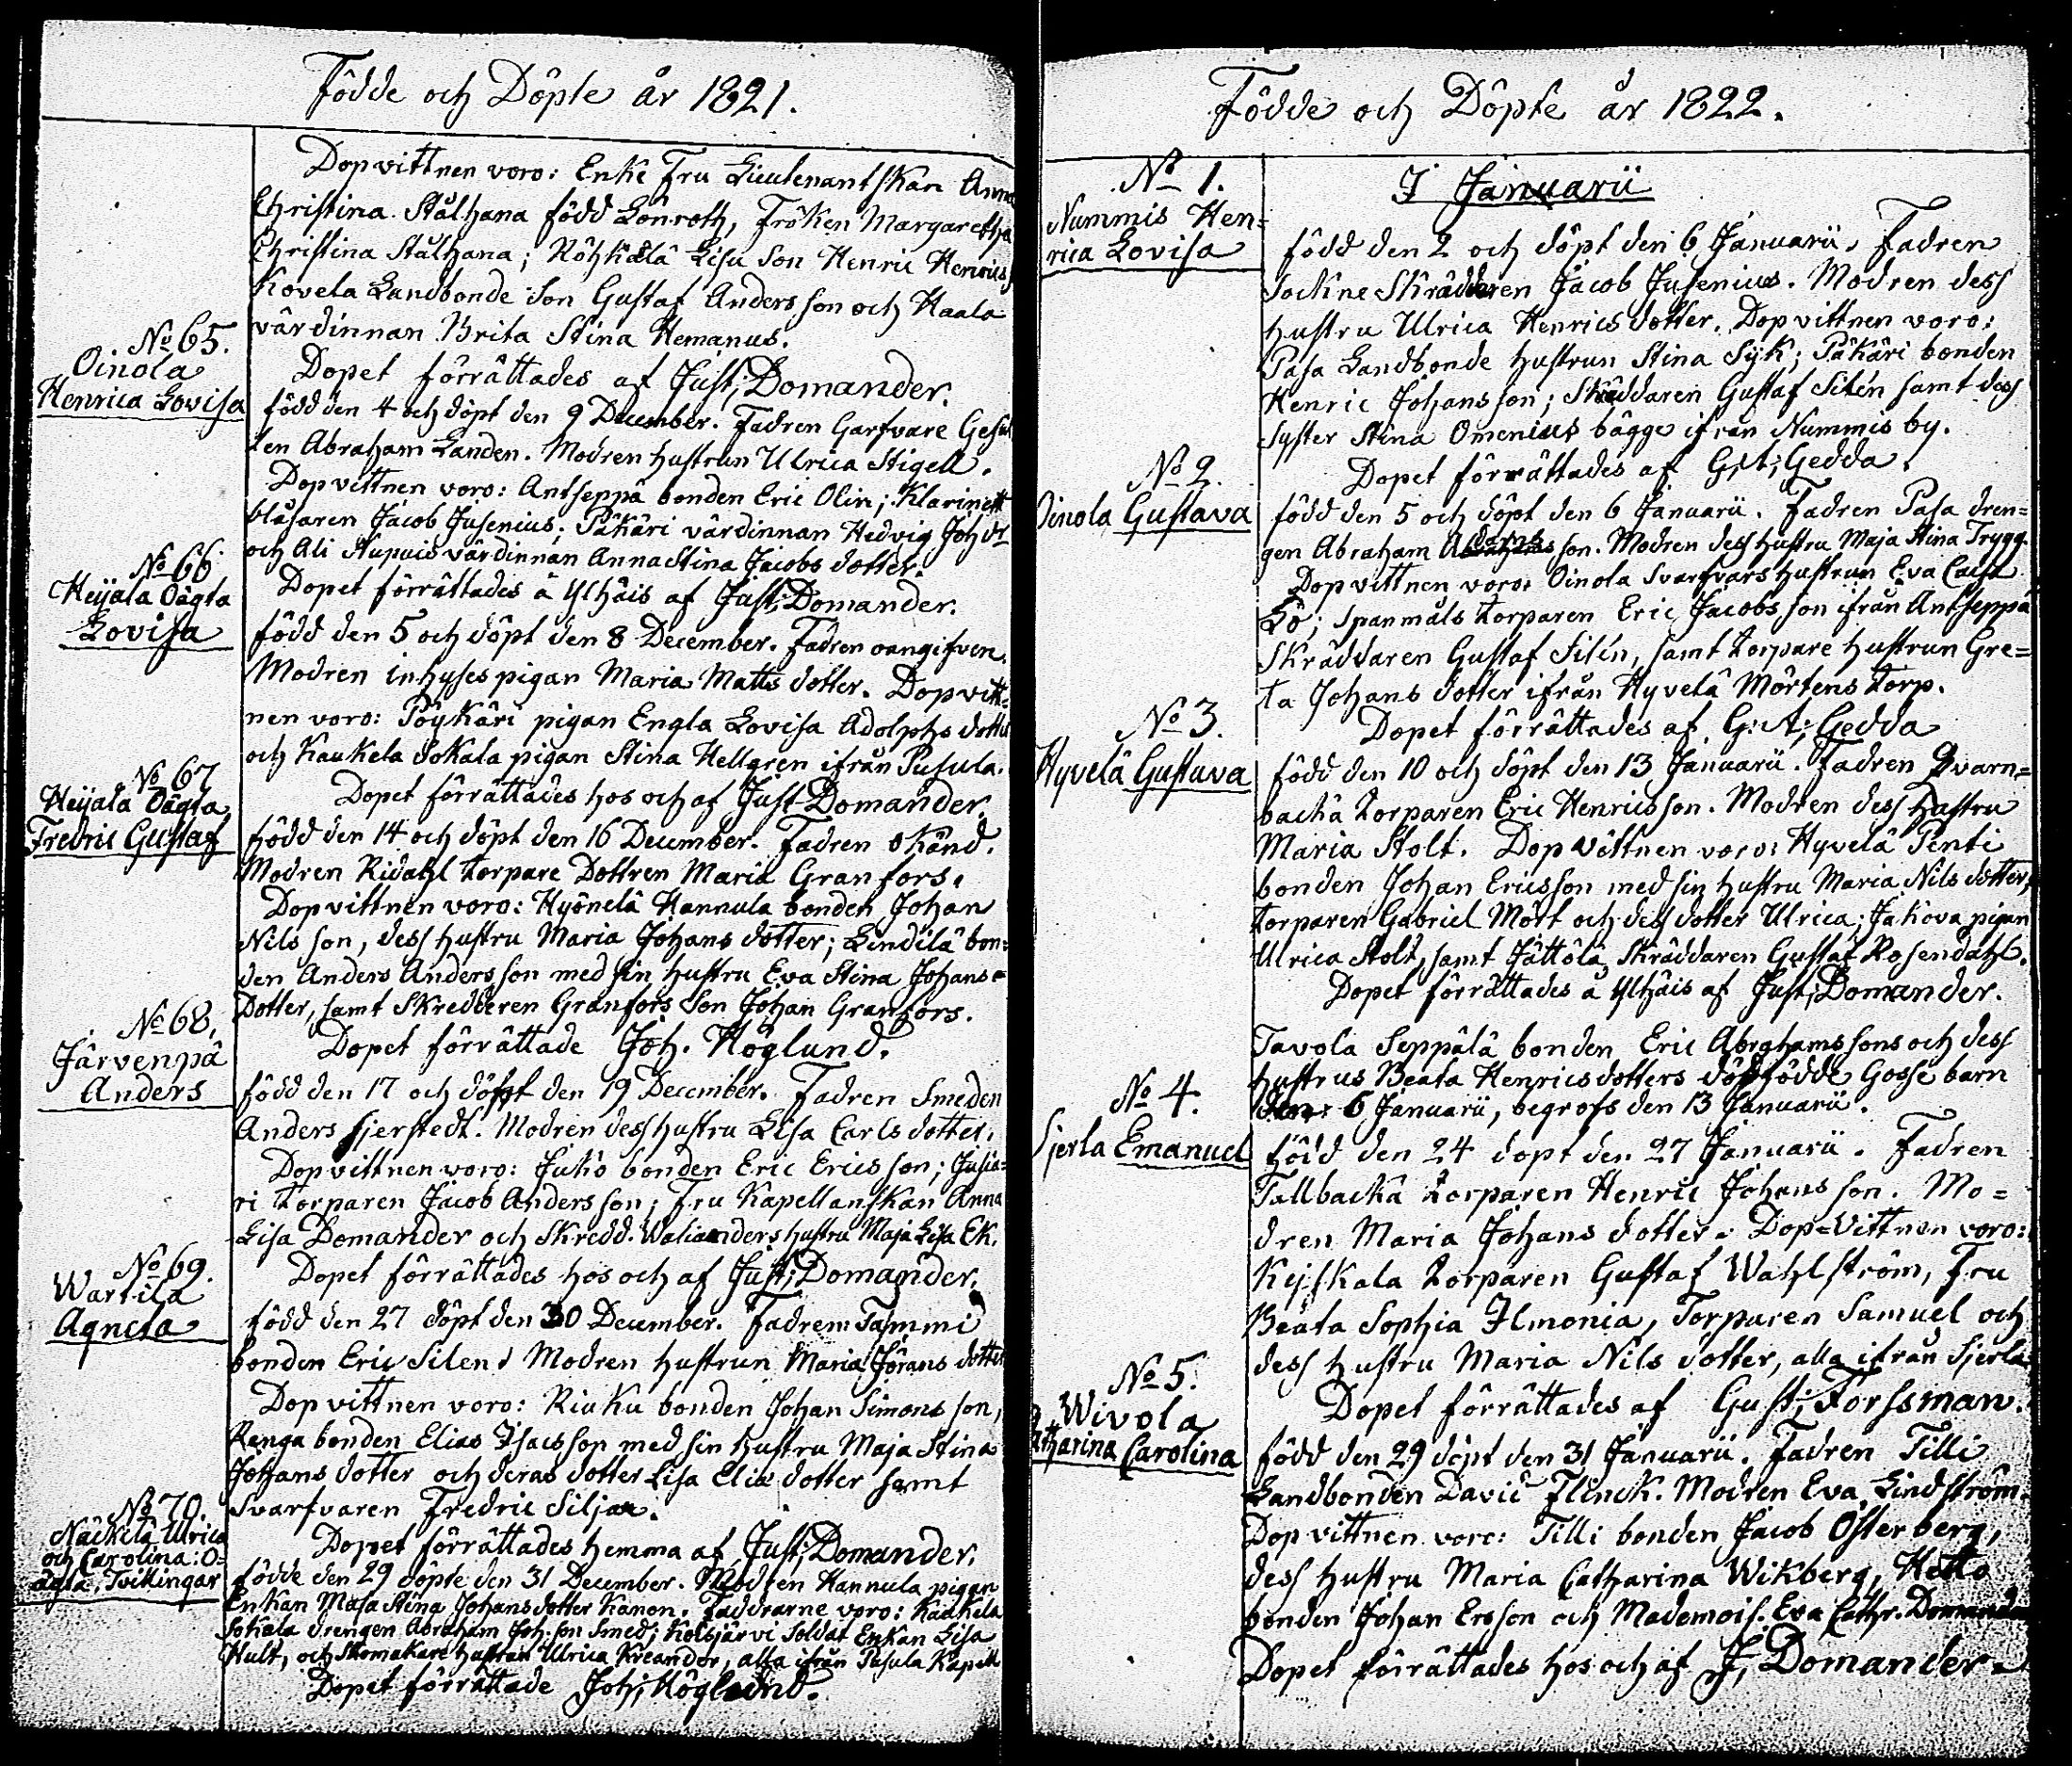 Födde och Döpte år 1821.
Dopvittnen voro: Enke Fru Lieutenantskan Anna
Christina Stålhana född Lönroth, Fröken Margaretha
Christina Stålhana; Röhkälä Lisu Son Henric Henrics
Kovela Landbonde Son Gustaf Andersson och Haala
värdinnan Brita Stina Hemanus.
Dopet förrättades af Just; Domander.
No 65.
Oinola
Henrica Lovisa
född den 4 och döpt den 9 December. Fadren Garfvare Gesäl
len Abraham Landen. Modren hustrun Ulrica Stigell.
Dopvittnen voro: Antseppä bonden Eric Olin; Klarinett
blåsaren Jacob Jusenius; Päkäri värdinnan Hedvig Joh dr
och Ali Nupuis värdinnan Anna Stina Jacobs dotter.
Dopet förrättades å Ylhäis af Just; Domander.
No 66
Heijala Oägta
Lovisa
född den 5 och döpt den 8 December. Fadren oangifven.
Modren inhyses pigan Maria Matts dotter. Dopvitt=
nen voro: Pöykäri pigan Engla Lovisa Adolphs dotter
och Kaukela Sokala pigan Stina Hellgren ifrån Pusula.
Dopet förrättades hos och af Just Domander.
No 67
Heijala Oägta
Fredric Gustaf
född den 14 och döpt den 16 December. Fadren okänd.
Modren Ridahl torpare Dottren Maria Granfors.
Dopvittnen voro: Hyönelä Hannula bonden Johan
Nils son, dess hustru Maria Johans dotter; Lindilä bon=
den Anders Andersson med sin hustru Eva Stina Johans=
Dotter, samt Skredderen Granfors Son Johan Granfors.
Dopet förrättade Joh. Höglund.
No 68.
Järvenpä
Anders
född den 17 och döpt den 19 December. Fadren Smeden
Anders Fjerstedt. Modren dess hustru Lisa Carls dotter.
Dopvittnen voro: Jukio bonden Eric Ericsson; Jusis=
ri torparen Jacob Andersson; Fru Kapellanskan Anna
Lisa Domander och Skredd. Walianders hustru Maja Lisa Ek.
Dopet förrättades hos och af Just; Domander.
No 69.
Wartila
Agneta
född den 27 döpt den 30 December. Fadren Tammi
bonden Eric Silen. Modren hustrun Maria Jörans dotter
Dopvittnen voro: Riuku bonden Johan Simons son,
Renga bonden Elias Isacsson med sin hustru Maja Stina
Johans dotter och deras dotter Lisa Elia dotter samt
svarfvaren Fredric Siljan.
Dopet förrättades hemma af Just; Domander.
No 70.
Näckilä Ulrica
och Carolina: O=
ägta, Tvillingar
födde den 29 döpte den 31 December. Modren Hannula pigan
Enkan Maja Stina Johansdotter Kanon. Faddrarne voro: Kaukela
Sokala drengen Abraham Joh: son Smed; Kolsjärvi Soldat Enkan Lisa
Hult, och Skomakare hustrun Ulrica Kreander, alla ifrån Pusula Kapell
Dopet förrättade Joh; Höglund.
Födde och Döpte år 1822.
I Januarii
No 1.
Nummis Hen=
rica Lovisa
född den 2 och döpt den 6 Januarii. Fadren
Sockne Skräddaren Jacob Jusenius. Modren dess
hustru Ulrica Henrics dotter. Dopvittnen voro:
Pasa Landbonde hustrun Stina Syk; Päkäri bonden
Henric Johansson; Skräddaren Gustaf Silén samt dess
syster Stina Omenius bägge ifrån Nummis by.
Dopet förrättades af G; A; Gedda.
No 2.
Oinola Gustava
född den 5 och döpt den 6 Januarii. Fadren Pasa dren=
gen Abraham Adams son. Modren dess hustru Maja Stina Trygg.
Dopvittnen voro: Oinola Svarfvars hustrun Eva Caisa
Lö; Spanmåls torparen Eric Jacobsson ifrån Antseppä
Skräddaren Gustaf Silén, samt torpare hustrun Gre=
ta Johans dotter ifrån Hyvelä Mörtens torp.
Dopet förrättades af G: A; Gedda
No 3.
Hyvelä Gustava
född den 10 och döpt den 13 Januarii. Fadren Qvarn=
backa torparen Eric Henricsson. Modren dess hustru
Maria Stolt. Dopvittnen voro: Hyvelä Penti
bonden Johan Ericsson med sin hustru Maria Nils dotter;
torparen Gabriel Mört och dess dotter Ulrica; Jakova pigan
Ulrica Stolt, samt Jättölä Skräddaren Gustaf Rosendahl.
Dopet förrättades å Ylhäis af Just; Domander.
Tavola Seppälä bonden Eric Abrahamssons och dess
hustrus Beata Henricsdotters dödfödde Gosse barn
den 6 Januarii, begrofs den 13 Januarii.
No 4.
Sjerla Emanuel
född den 24 döpt den 27 Januarii. Fadren
Tallbacka torparen Henric Johansson. Mo=
dren Maria Johans dotter. Dop=Vittnen voro:
Kejskala torparen Gustaf Wahlström, Fru
Beata Sophia Ilmonia, Torparen Samuel och
dess hustru Maria Nils dotter, alla ifrån Sjerla
Dopet förrättades af Gust; Forssman.
No 5.
Wivola
Catharina Carolina
född den 29 döpt den 31 Januarii. Fadren Tilli
Landbonden David Flinck. Modren Eva Lindström.
Dopvittnen voro: Tilli bonden Jacob Österberg,
dess hustru Maria Catharina Wikberg, Hetto
bonden Johan Ersson och Mademois. Eva Cathr. Domander
Dopet förrättades hos och af J; Domander.